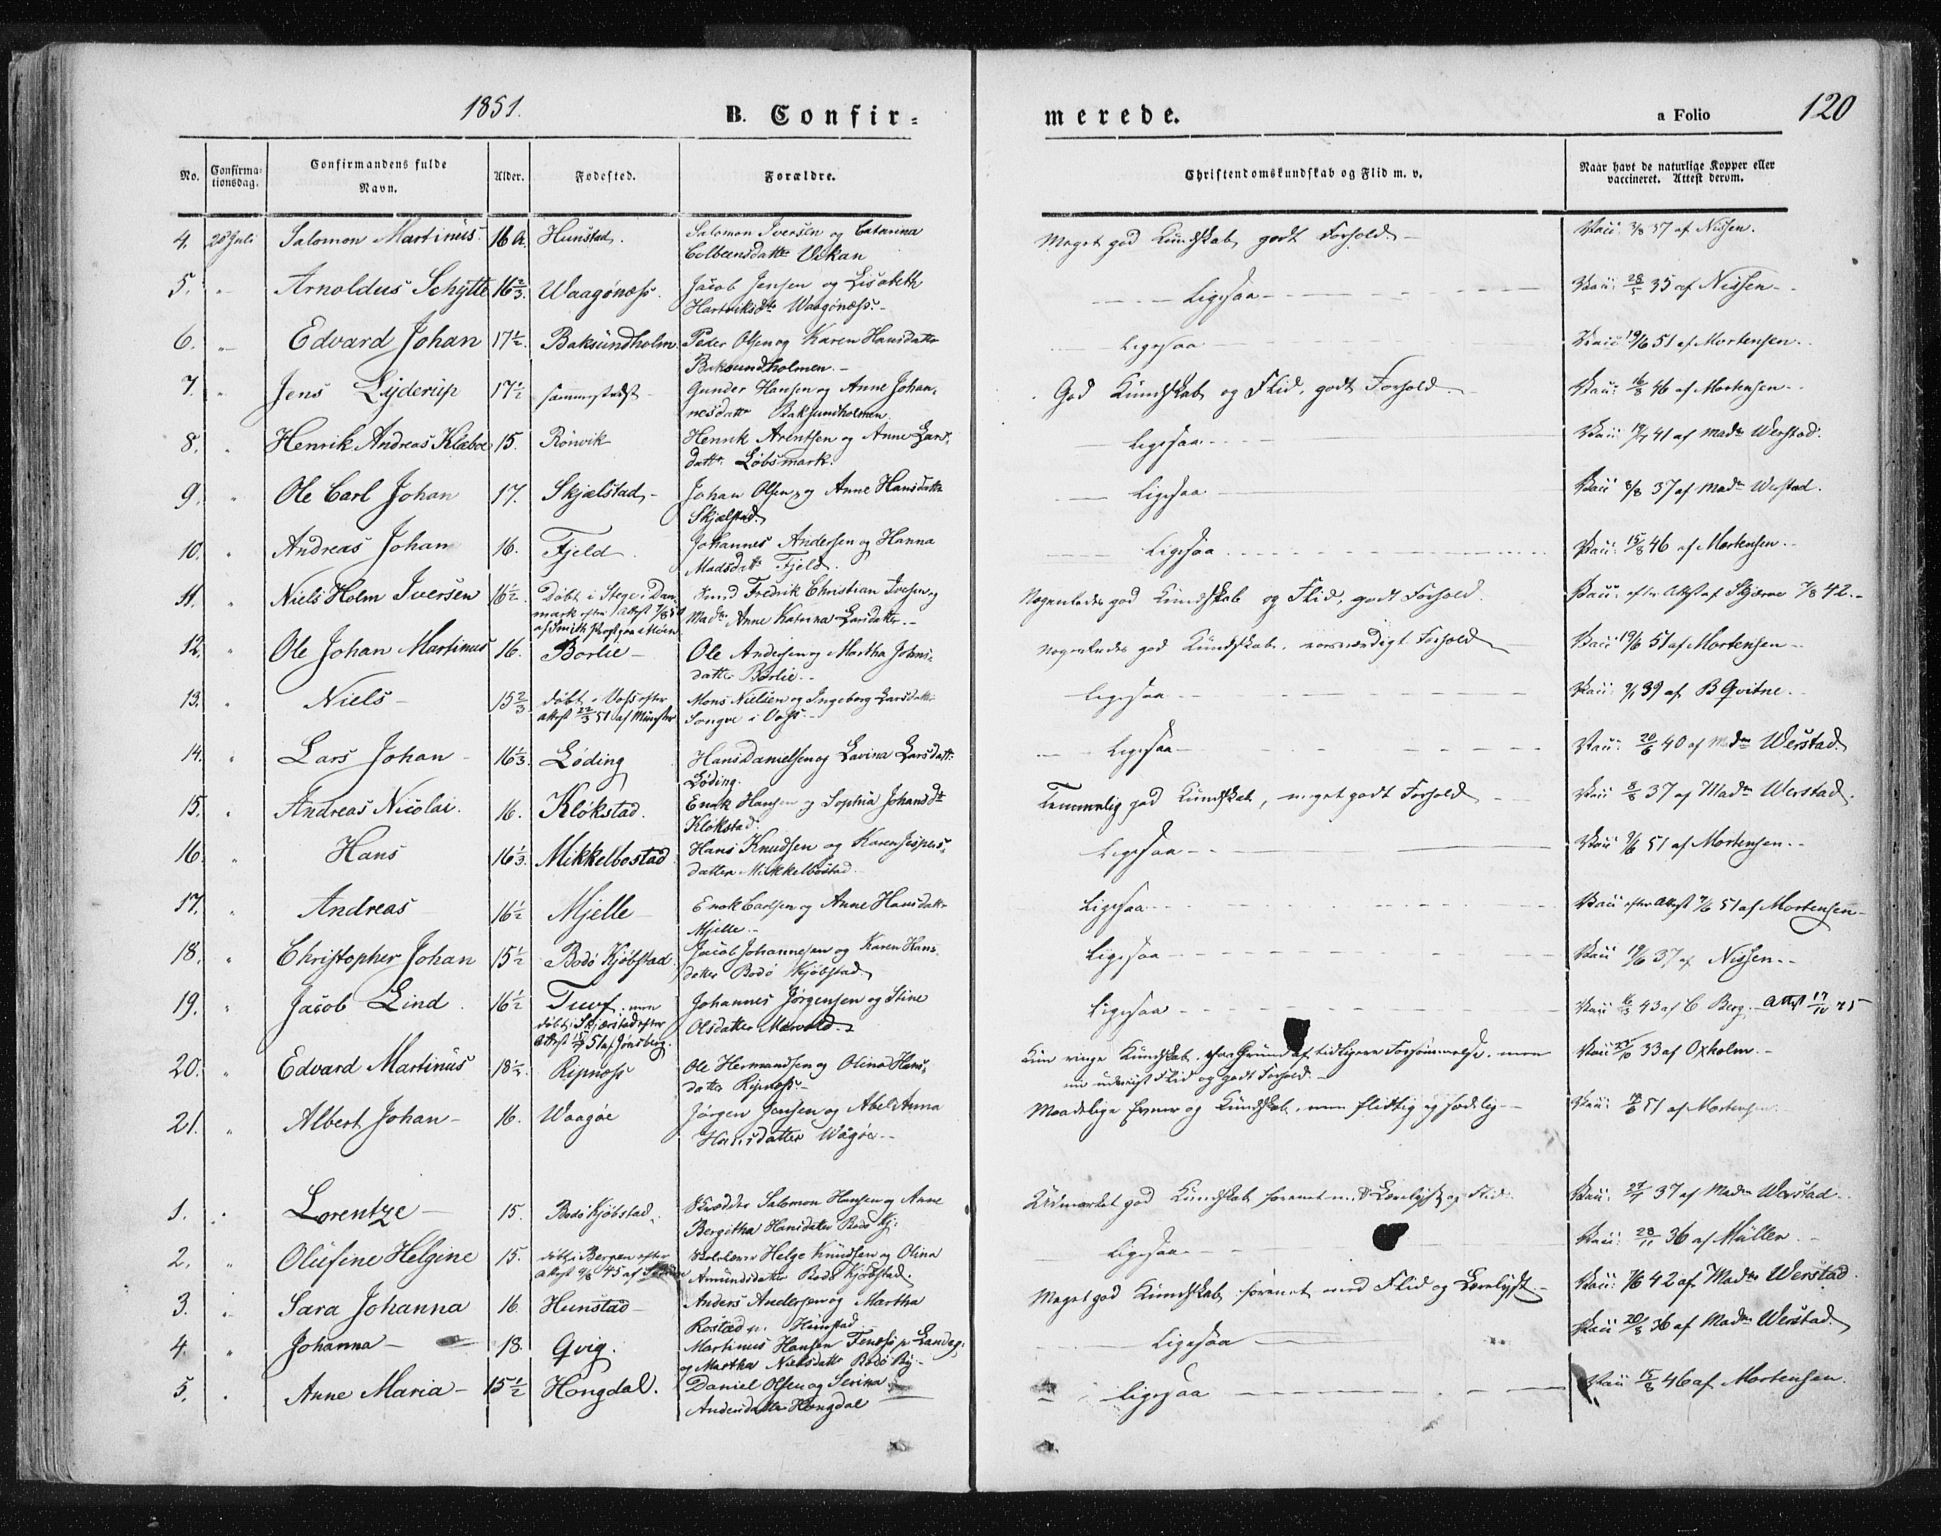 1851.
B. Confir=
merede.
a Folio
120
No.
Confirma-
tionsdag.
Confirmandens fulde
Navn.
Alder.
Fødested.
Forældre.
Christendomskundskab og Flid m. v.
Naar havt de naturlige Kopper eller
vaccineret. Attest derom.
4. 20 Juli Salomon Martinus 16 A. Hunstad. Salomon Iversen og Catarina
Meget god Kundskab, godt Forhold - Vacc: 3/8 37 af Nissen.
5. " Arnoldus Schytte 16 2/3 Waagønæss. Jacob Jensen og Lisabeth
Hartviksdtr Waagønæss. -
Ligesaa - Vacc: 35 af Nissen -
6. " Edvard Johan 17 1/2 Baksundholm. Peder Olsen og Karen Hansdatter
Baksundholmen. -
Ligesaa Vacc: 19/6 51 af Mortensen.
7. " Jens Lyderup 17 1/2 sammestedst - Gunder Hansen og Anne Johan-
nesdattr Baksundholmen.
God Kundskab og Flid, godt Forhold. Vacc: 16/8 46 af Mortensen -
8. " Henrik Andreas Klæboe 15. Rønvik Henrik Arentsen og Anne Lars-
dattr. Løbsmark.
Ligesaa Vacc: 41 af Madm Werstad.
9. " Ole Carl Johan 17. Skjælstad - Johan Olsen og Anne Hansdattr
Skjælstad.
Ligesaa Vacc 8/8 37 af Madm Werstad.
10. " Andreas Johan 16. Fjeld. Johannes Andersen og Hanna
Madsdattr Fjeld.
Ligesaa Vacc: 15/8 46 af Mortensen. -
11. " Niels Holm Iversen 16 1/2 Døbt i Stege i Dan-
mark efter Attest
Fredrik Christian Iversen og
Madm Anne Katrina
Nogenledes god Kundskab og Flid, godt Forhold. Vacc: efter Attest af 7/8 42. -
12. " Ole Johan Martinus 16. Børlie - Ole Andersen og Martha Johns-
datter Børlie. -
nogenledes god Kundskab, Forhold Vacc: 19/6 51 af Mortensen -
13. " Niels - 15 2/3 døbt i Voss efter
attest 22/3 51 af Münster
Mons Nielsen og Ingeborg Larsdatter
i Voss. -
Ligesaa Vacc: 39 af B Qvitne.
14. " Lars Johan - 16 1/3 Løding Hans Danielsen og Lavina Larsdattr
Løding.
Ligesaa Vacc: 20/6 40 af Madm Werstad
15. " Andreas Nicolai. 16. Kløkstad. Enok Hansen og Sophia Johansdtr
Kløkstad.
Temmelig god Kundskab, meget godt Forhold Vacc: 8/8 37 af Madm Werstad.
16. " Hans 16 1/3 Mikkelbostad Hans Knudsen og Karen Jespers-
datter Mikkelbostad.
Ligesaa Vacc 51 af Mortensen. -
17. " Andreas 16 1/2 Mjelle Enok Carlsen og Anne Hansdattr
Mjelle -
Ligesaa Vacc efter Attest 51 af Mortensen -
18. " Christopher Johan 15 1/2 Bodø Kjøbstad Jacob Johannesen og Karen Hans-
datter Bodø Kjøbstad
Ligesaa Vacc 19/6 37 af Nissen. -
19. " Jacob Lind 16 1/2 Tuvf. men
døbt i Skjærstad efter
Attest 51 af Jønsberg.
Johannes Jørgensen og Stine
Olsdatter
Ligesaa Vacc: 43 af C Berg. - Attest
20. " Edvard Martinus 18 1/2 Ripnæss Ole Hermandsen og Olina Hans-
datter Ripnæss -
Kun ringe Kundskab, paa Grund af tidligere Forsømmelse, men
nu udviist Flid og godt Forhold. -
Vacc 33 af Oxholm. -
21. " Albert Johan - 16. Waagøe Jørgen Jensen og Abel Anna
Hansdatter Wågøe. -
Maadelige Evner og Kundskab, men flittig og sædelig - Vacc: 19/6 51 af Mortensen
1. " Lorentze - 15. Bodø Kjøbstad. Skrædder Salomon Hansen og Anne
Bergitha Hansdatter Bodø Kj:
Udmærket god Kundskab forenet med Lærelyst og Flid. Vacc: 37 af Madm Werstad
2. " Olufine Helgine 15. døbt i Bergen efter
Attest 9/8 45 af
Helge Knudsen og Olina
Amundsdatter Bodø Kjøbstad.
Ligesaa Vacc: 28/11 36 af Müller. -
3. " Sara Johanna 16 Hunstad - Anders Andersen og Martha
Hunstad
Meget god Kundskab forenet med Flid og Lærelyst - Vacc: 42 af Madm Werstad.
4. " Johanna - 18. Qvig. Martinus Hansen
og Martha Nielsdattr Bodø By -
Ligesaa Vacc 20/8 36 af Madm Werstad.
5. " Anne Maria - 15 1/2 Hongdal. Daniel Olsen og Serina
Hongdal
Ligesaa Vacc 15/8 46 af Mortensen.